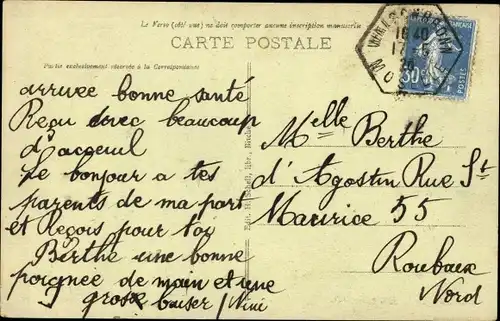 Le Verso (côté vue) ne doit comporter aucune inscription manuscrite
CARTE POSTALE
Partie exclusivement réservée à la Correspondance
arrivée bonne santé
Reçu avec beaucoup
d'acceuil
Le bonjour a tes
parents de ma part
et Reçois pour toi
Berthe une bonne
poignee de main et une
gross baiser / Nini
Melle Berthe
d'Agostin Rue St
Maurice 55
Roubaix
Nord
30
POSTES
16 40